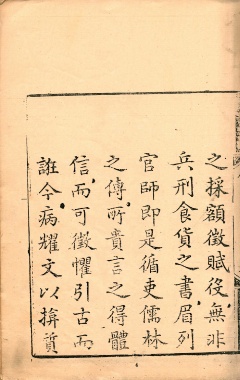 之採額徵賦役無非
兵刑食貨之書眉列
官師即是循吏儒林
之傳所貴言之得體
信而可徵懼引古而
誑今病耀文以揜質